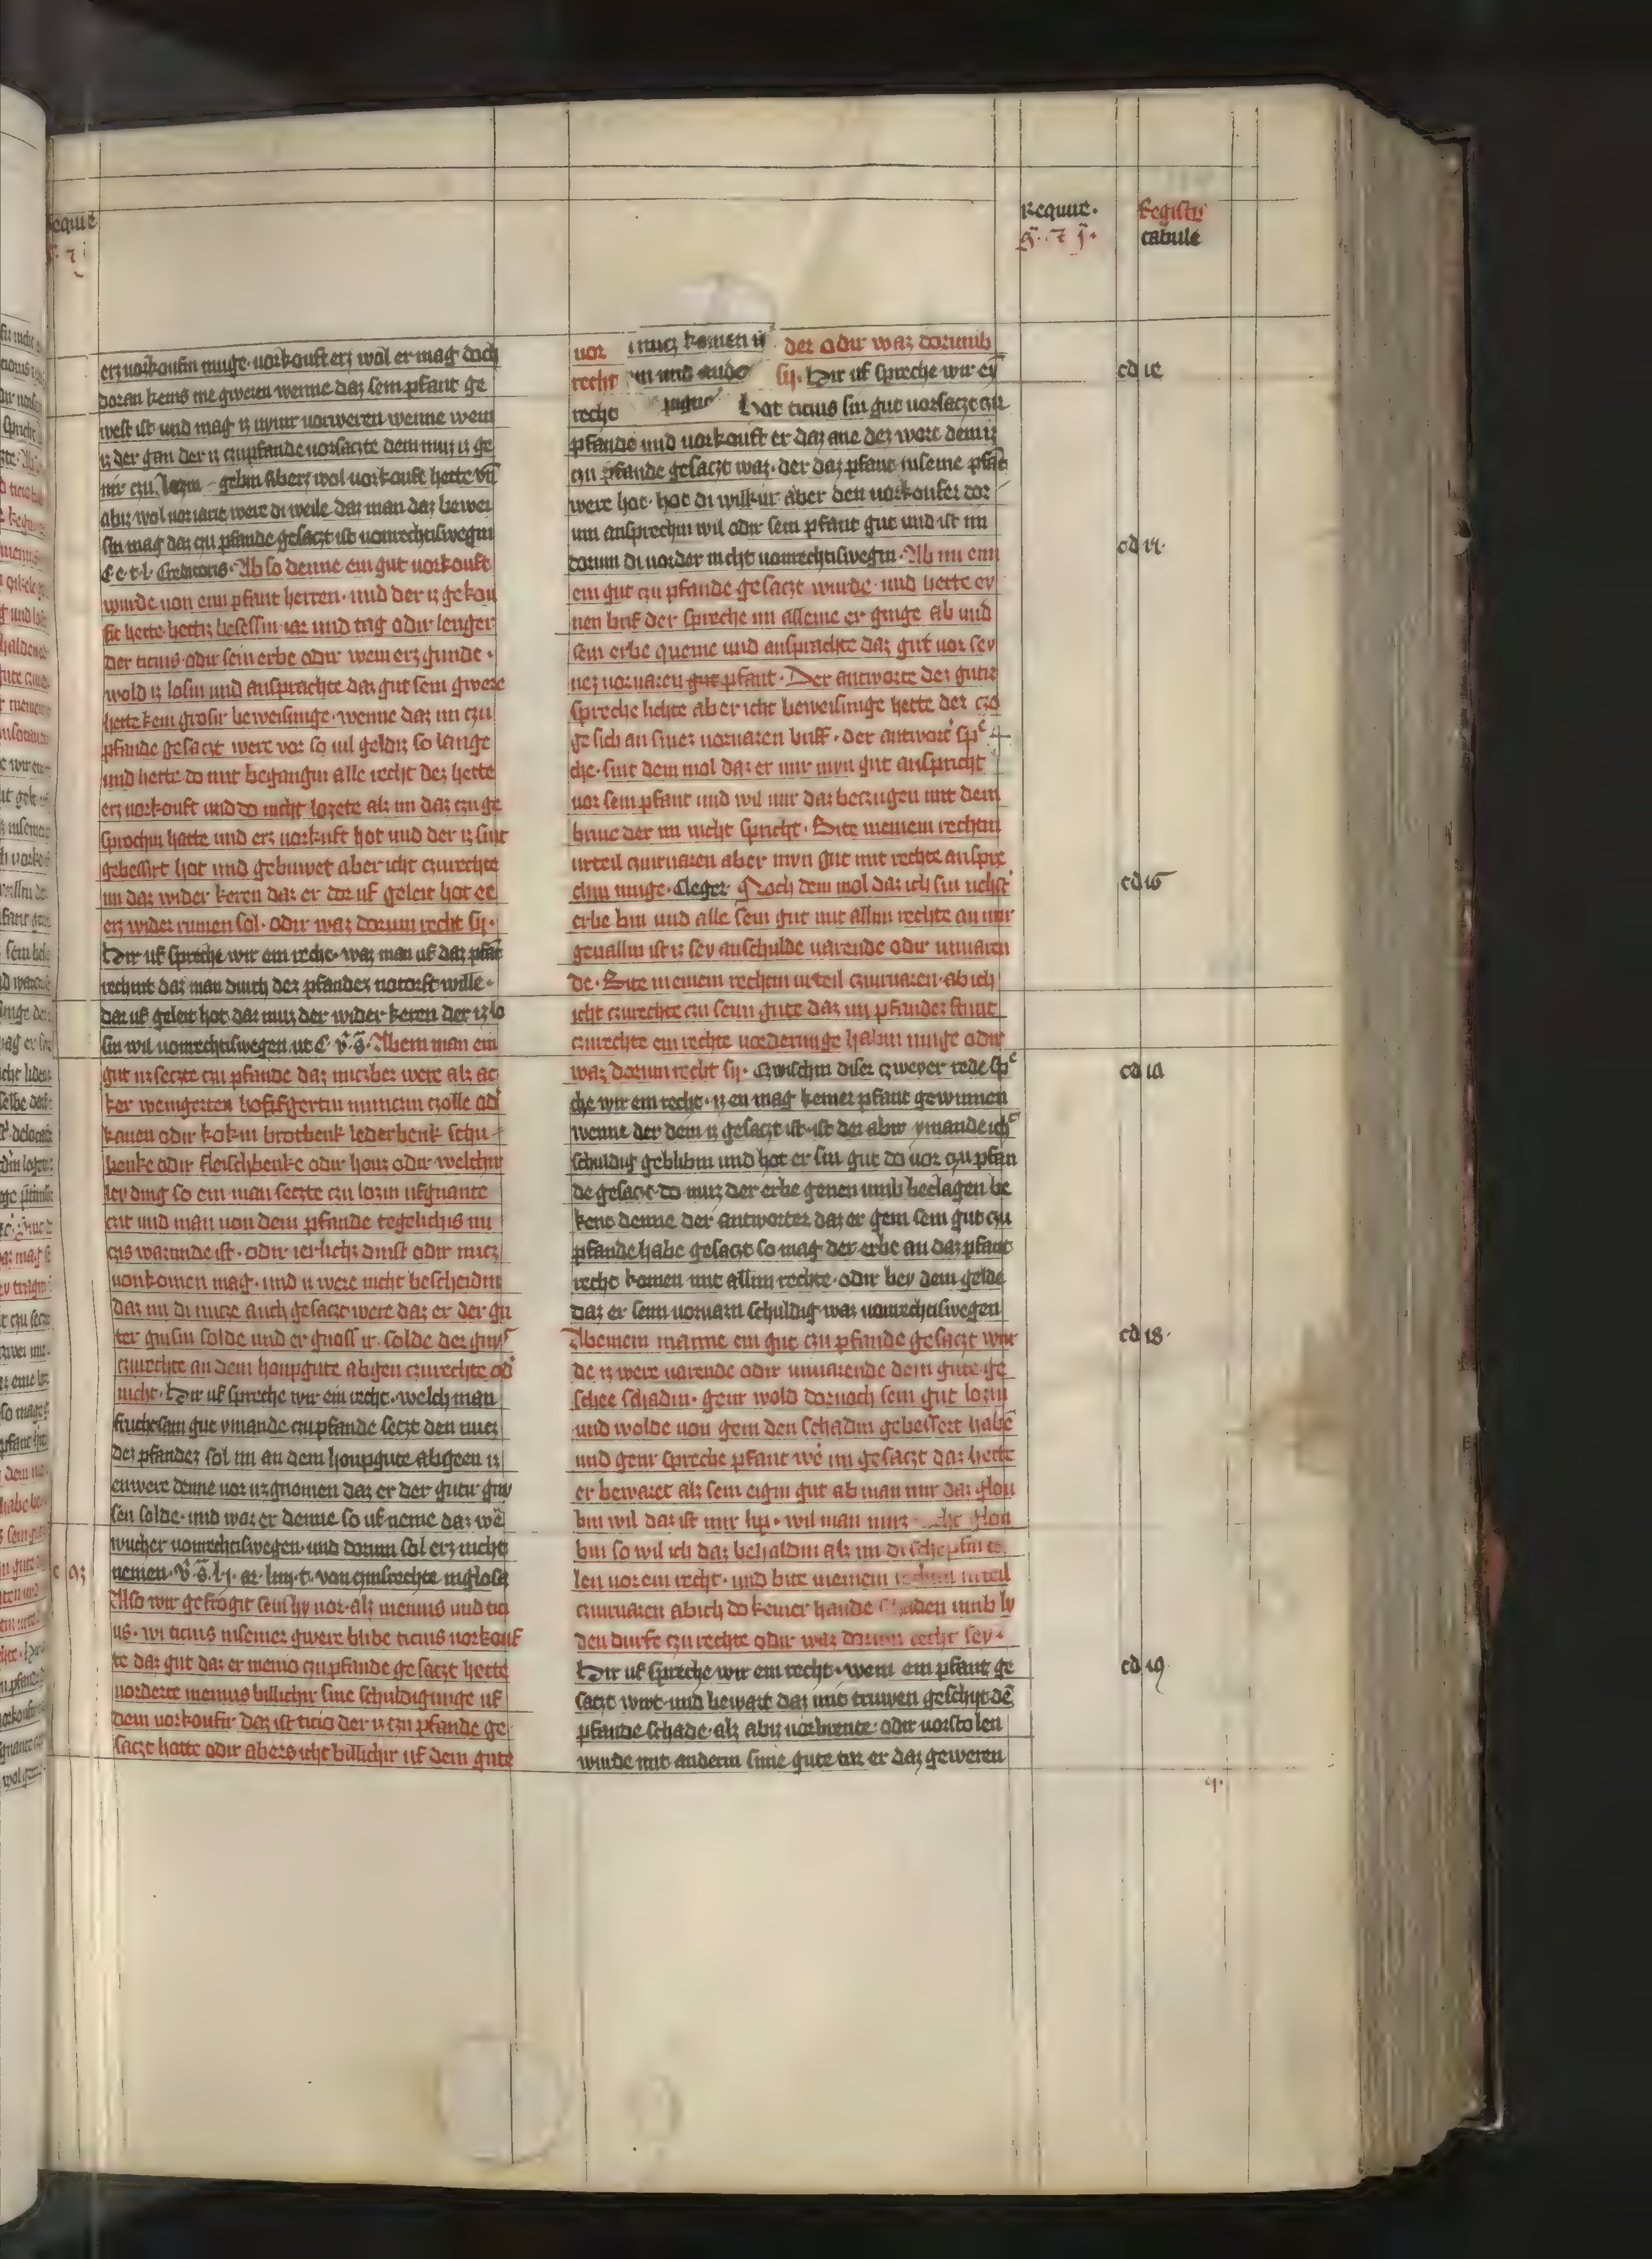 Requiꝛe.
Registꝝ
tabule
erz uorkoufin muge. uorkouft erz wol er mag doch
doran keins me gweren wenne daz sein pfant ge
west ist und mag iz nymᷓ uorweren wenne wem
iz der gan der iz czupfande uorsaczte dem muz iz ge
nir czu lozin gebin Aberz wol uorkouft hette vn̄
abirz wol uoriaric were di weile daz man daz bewei
sin mag daz czu pfande gesaczt ist uonrechtiswegin
C. e. t. l. Creditoris. Ab so denne ein gut uorkouft
wurde uon eim pfant herren. und der iz gekou
fit hette hettiz besessin iar und tag odir lenger
der ticius odir sein erbe odir wem erz gunde.
wold iz losin und ansprachte daz gut sem gwere
hette kein grosir beweisunge. wenne daz im czu
pfande gesaczt were vor so uil geldiz so lange
und hette do mit begangin alle recht dez hette
erz uorkouft und do nicht lozete alz im daz czuge
sprochin hatte und erz uorkuft hot und der iz sint
gebessirt hot und gebuwet aber icht czurechte
im daz wider keren daz er dor uf geleit hot ee
erz wider rumen sol. odir waz dorum recht sij.
Hir uf spreche wir ein recht. waz man uf daz pfāt
rechint daz man durch dez pfandez notorft wille.
dar uf geleit hot daz muz der wider keren der iz lo
sin wil uonrechtiswegen ut C. v. s. Abem man ein
gut uzseczte czu pfande daz nuczber were alz ac
ker weingerten hoffsgertin municzin czolle od᷑
kauen odir kokin brotbenk lederbenk schu
benke odir fleischbenke odir houz odir welchir
ley ding so ein man seczte czu lozin ufgnante
czit und man uon dem pfande tegelichis nu
czis wartinde ist. odir ierlichz dinst odir nucz
uonkomen mag. und iz were nicht bescheidin
daz im di nucze auch gesaczt were daz er der gu
ter gnisin solde und er gnoss ir. solde dez gniſ
czurechte an dem houpgute abgen czurechte od᷑
nicht. Hir uf spreche wir ein recht. welch man
fruchtsam gut ymande czupfande seczt den nucz
dez pfandez sol im an dem houpgute abgeen iz
enwere denne uor uzgnomen daz er der gutir gni
sen solde. und waz er denne so uf neme daz we᷑
wucher uonrechtiswegen. und dorum sol erz nicht
nemen. v. s. l. j. ar. liiij. t. von czinsrechte inglosa
Also wir gefrogit sein hy uor. alz meuius und tici
us. wi ticius insemer gwere blibe ticius uorkouf
te daz gut daz er meuio czu pfande gesaczt hette
uorderte meuius billichir sine schuldigunge uf
dem uorkoufir daz ist ticio der iz czu pfande ge
saczt hatte odir aberz icht billichir uf dem gute
uor der odir waz dorumb
recht sij. Hir uf spreche wir ey̅
recht Hat ticius sin gut uorsaczt czu
pfande und uorkouft er daz ane dez wort demiz
czu pfande gesaczt waz. der daz pfant inseine pfāt
were hot. hot di wilkur aber den uorkoufer dor
um ansprechin wil odir sein pfant gut und ist im
dorum di uorder nicht uonrechtiswegin. Ab im eim
ein gut czu pfande gesaczt wurde. und hette ey
nen brif der spreche im alleine er ginge ab und
sein erbe queme und ansprachte daz gut uor sey
nez uoruaren gut pfant. Der antworte dez gutiz
spreche lichte aber icht beweisunge hette der czo
ge sich an sinez uoruaren briff. der antwort sp᷑
che. sint dem mol daz er mir myn gut anspricht
uor sein pfant und wil mir daz beczugen mit dem
briue der im nicht spricht. Bite meinem rechtin
urteil czuiruaren aber myn gut mit rechte anspre
chin muge. Cleger Noch dem mol daz ich sin nehst
erbe bin und alle sein gut mit allim rechte an mir
geuallin ist iz sey anschulde uarende odir unuaren
de. Bite meinem rechtin urteil czuiruaren. ab ich
icht czurechte czu seim gute daz im pfandez stunt
czurechte ein rechte uorderunge habin muge odir
waz dorum recht sij. Czwischin diser czweyer rede sp᷑
che wir ein recht. iz en mag keiner pfant gewinnen
wenne der dem iz gesaczt ist. ist der abir ymande ich᷑
schuldig geblibin und hot er sin gut do uor czu pfan
de gesaczt. do muz der erbe genen umb beclagen be
kent denne der antworter daz er gem sein gut czu
pfande habe gesaczt so mag der erbe an daz pfant
recht komen mit allim rechte. odir bey dem gelde
daz er seim uoruarn schuldig waz uonrechtiswegen
Abeinem manne ein gut czu pfande gesaczt wur
de iz were uarende odir unuarende dem gute ge
schee schadin. genr wold dornoch sein gut lozin
und wolde uon gem den schadin gebessert habē
und genr spreche pfant we᷑ im gesaczt daz hette
er bewaret alz sein eigin gut ab man mir daz glou
bin wil daz ist mir lip. wil man mirz glou
bin so wil ich daz behaldin alz im di schepfin te
len uor ein recht. und bite meinem rechtin urteil
czuiruaren abich do keiner hande schaden umb ly
den durfe czu rechte odir waz dorum recht sey.
Hir uf spreche wir ein recht. wem ein pfant ge
saczt wirt. und bewart daz mit truwen geschyt dē
pfande schade. alz abiz uorbrente. odir uorstolen
wurde mit anderin sime gute tar er daz geweren
cd 12
cd 14.
cd 16
cd 1a
cd 18.
cd 19